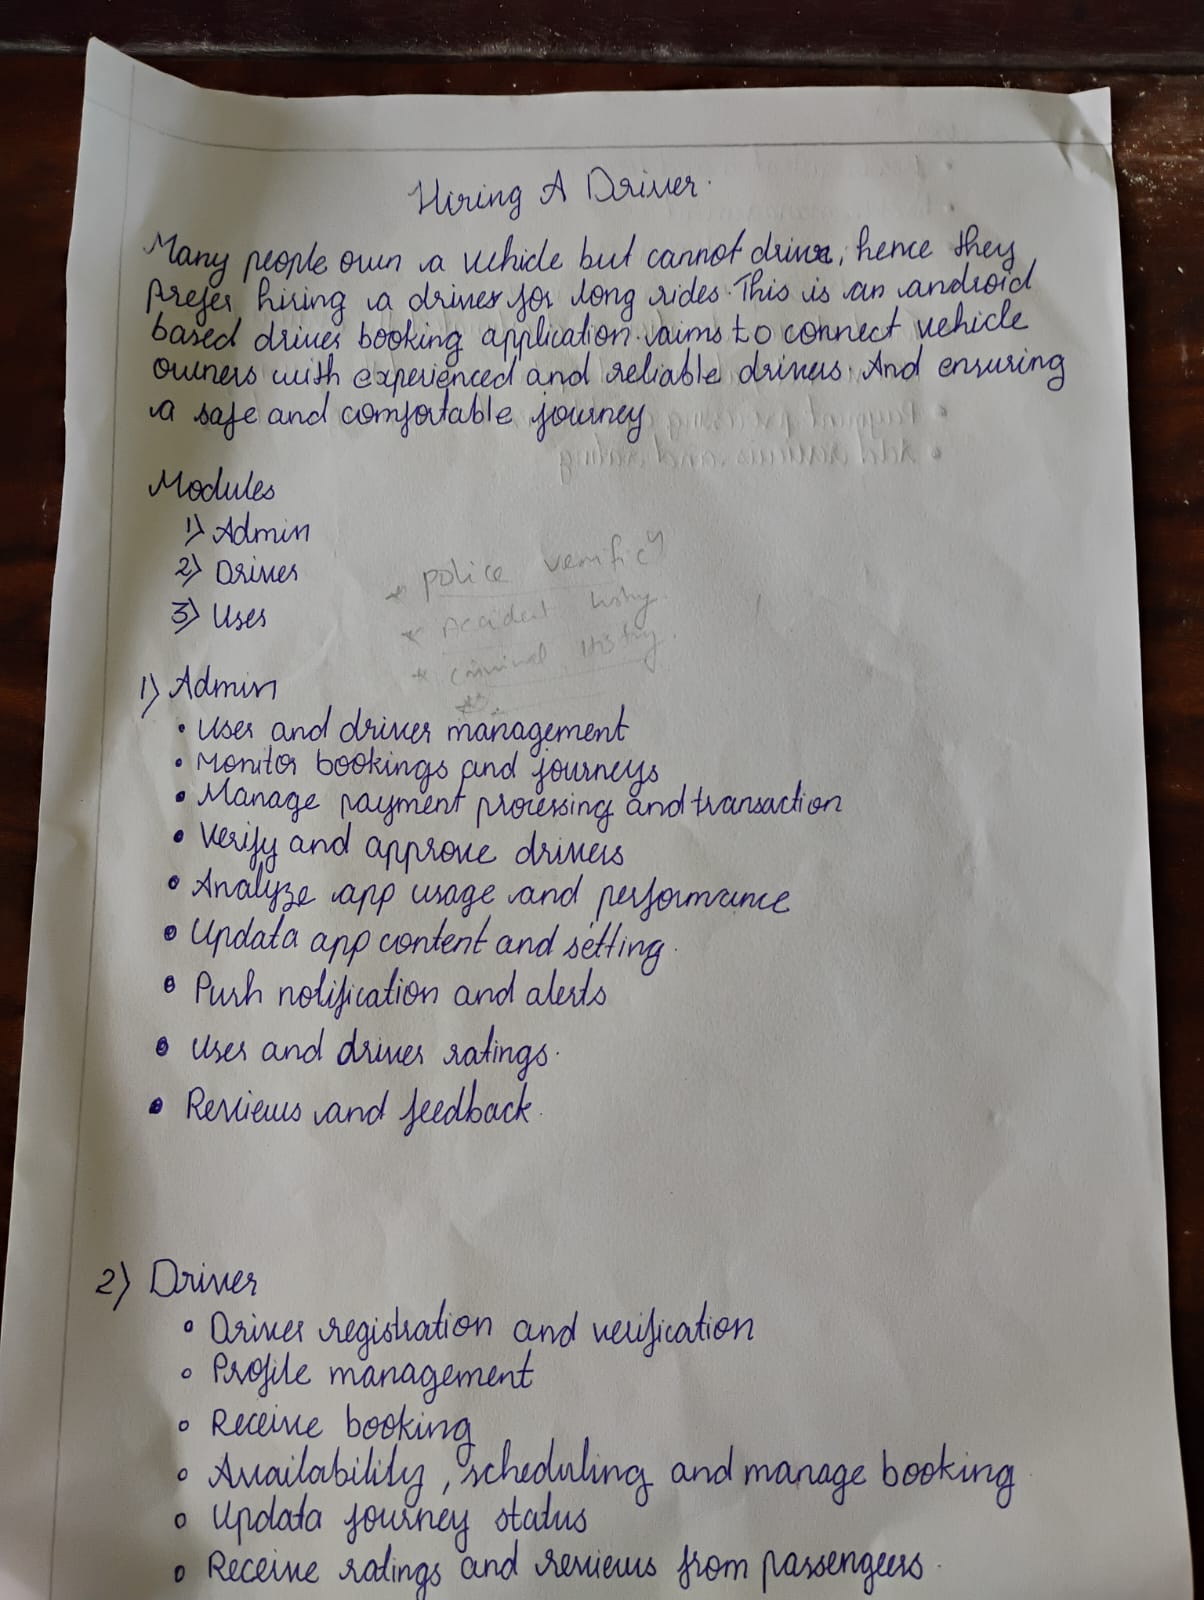 Hiring A Driver.
Many people own a vehicle but cannot drive, hence they
prefer hiring a driver for long rides. This is an android
based driver booking application aims to connect vehicle
owners with experienced and reliable drivers. And ensuring
a safe and comfortable journey
Modules
1) Admin
2) Driver
3) User
* police verific
* Accident
* criminal
1) Admin
• User and driver management
• Monitor bookings and journeys
• Manage payment processing and transaction
• Verify and approve drivers
• Analyze app usage and performance
• Updata app content and setting.
• Push notification and alerts
• User and driver ratings.
• Reviews and feedback.
2) Driver
• Driver registration and verification
• Profile management
• Receive booking
• Availability, scheduling and manage booking
• Updata journey status
• Receive ratings and reviews from passengers.